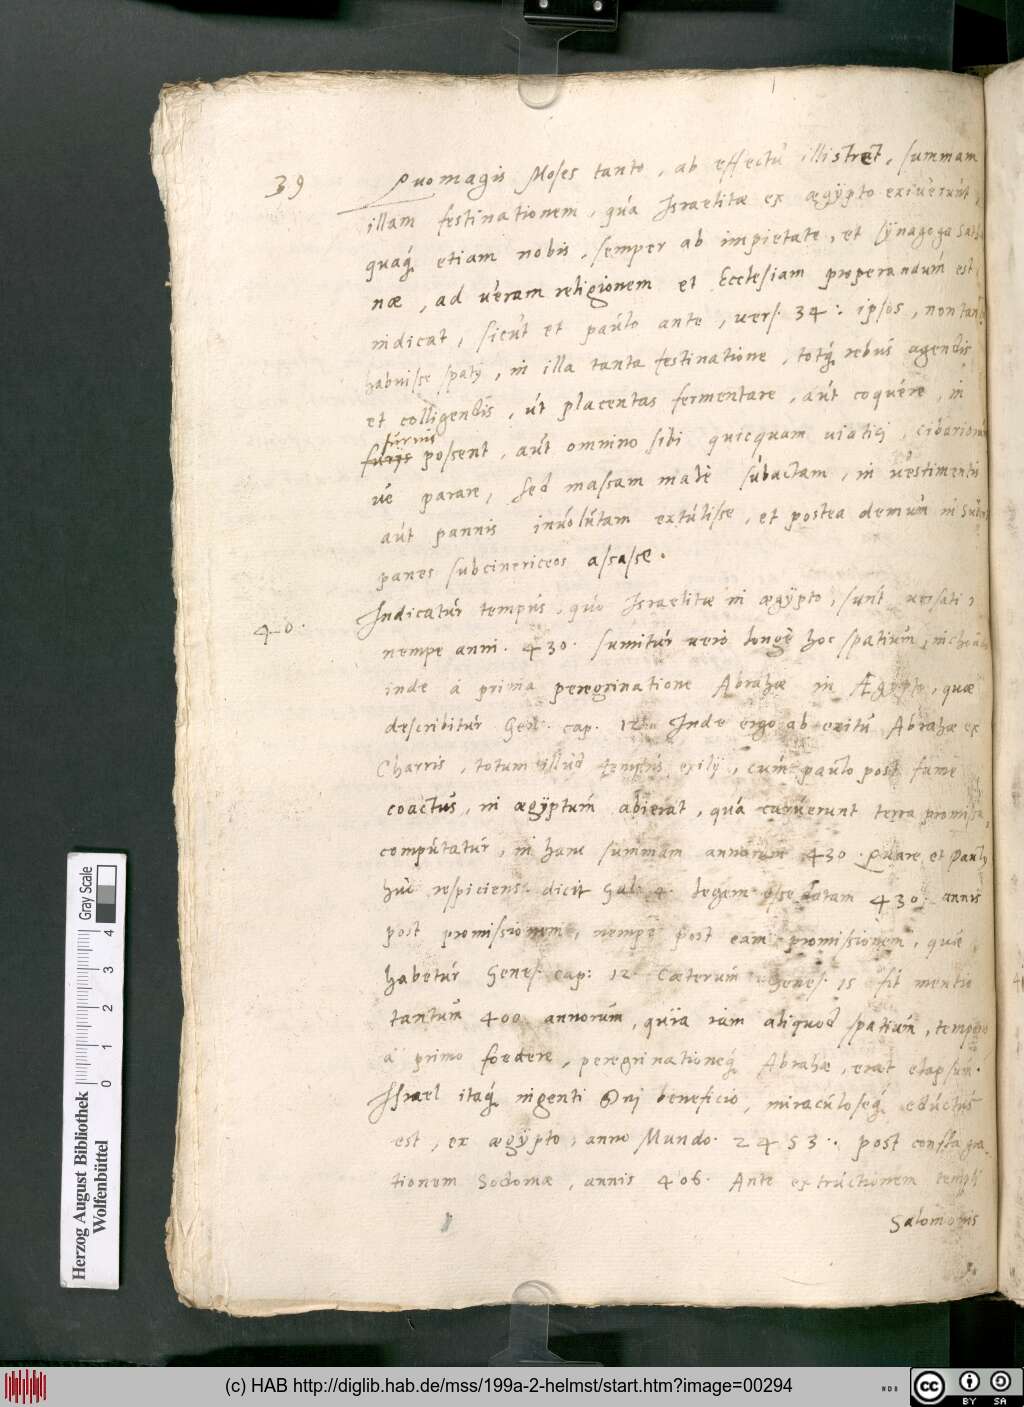 39 Quo magis Moses tanto, ab effectu illistret, summam
illam festinationem, qua Israelitæ ex ægÿpto exiuerunt,
quaq́ etiam nobis, semper ab impietate, et sÿnagoga Sata
næ, ad ueram religionem et Ecclesiam properandum est,
indicat, sicut et paulo ante, vers. 34: ipsos, non tant
habuisse spatij, in illa tanta festinatione, totq́ rebus agendis
et colligendis, ut placentas fermentare, aut coquere, in
furnis
furijs possent, aut omnino sibi quicquam uiatici, cibarior
ue parare, sed massam malè subactam, in uestimentis
aut pannis inuolutam extulisse, et postea demum in
panes subcinericeos assasse.
40. Indicatur tempus, quo Israelitæ in ægÿpto, sunt uersati,
nempe anni. 430. sumitur uero longè hoc spatium,
inde à prima peregrinatione Abrahæ in Ægypto, quæ
describitur Gen. cap. 12. Inde ergo ab exitu Abrahæ ex
Charris, totum illud tempus exilij, cum paulo post fame
coactus, in ægÿptum abierat, qua caruerunt terra promissa,
computatur, in hanc summam annorum 430. Quare et Paulus
huc respiciens. dicit Gal: 4. legem esse datam 430. annis
post promissionem, nempe post eam promissionem, quæ
habetur Genes. cap: 12. Cæterum Genes. 15 fit mentio
tantum 400 annorum, quia iam aliquod spatium, tempore
à primo foedere, peregrinationeq́ Abrahæ, erat elapsum.
Israel itaq́ ingenti Dni beneficio, miraculoseq́ eductus
est, ex ægÿpto, anno Mundo. 2453.. post confla gra
tionem Sodomæ, annis 406. Ante extructionem templi
Salomonis
Herzog August Bibliothek
Wolfenbüttel
0 1 2 3 4
Gray Scale
(c) HAB http://diglib.hab.de/mss/199a-2-helmst/start.htm?image=00294
cc BY SA